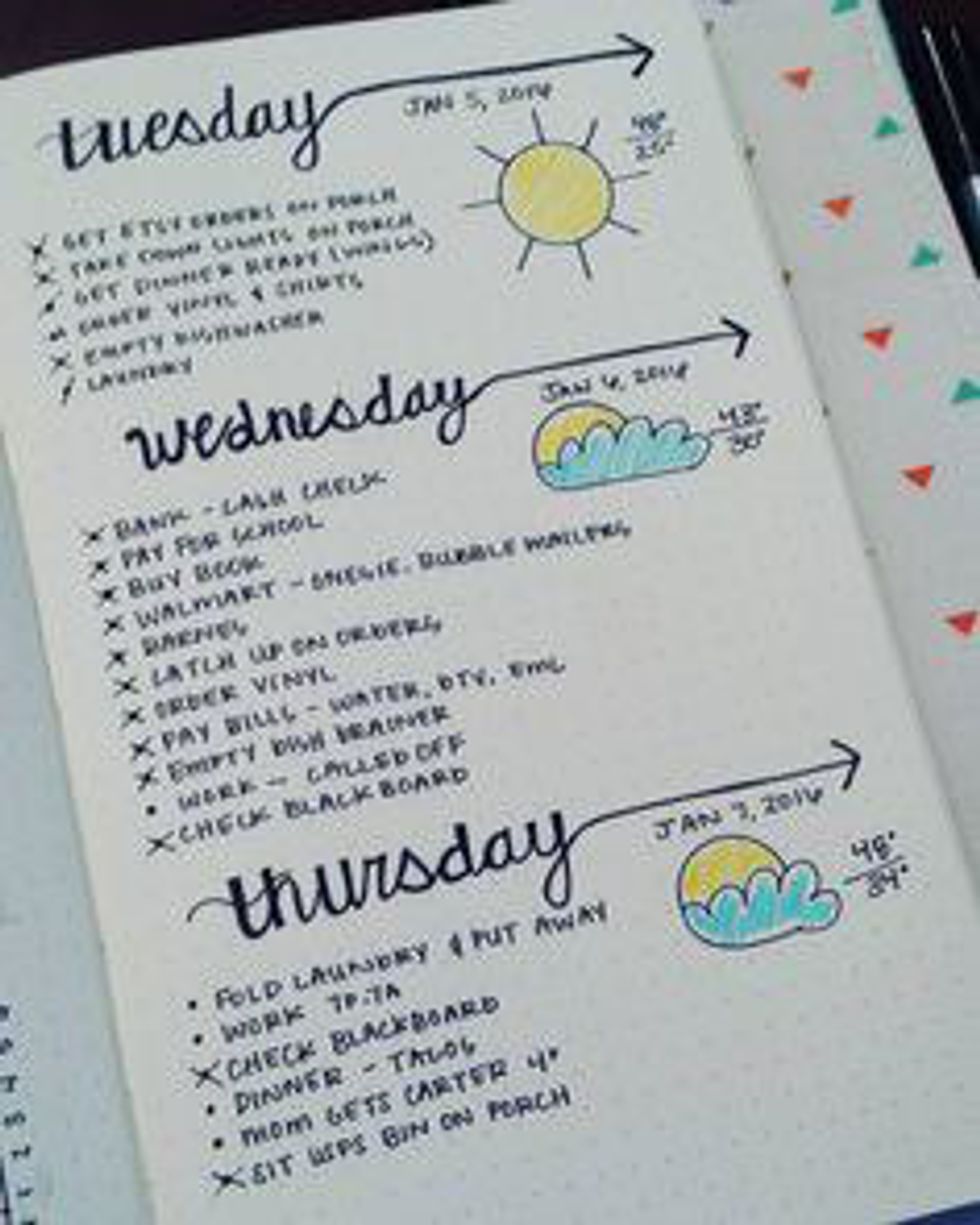 tuesday
JAN 5, 2016
48°
25°
X GET ETSY ORDERS ON PORCH
X TAKE DOWN LIGHTS ON PORCH
GET DINNER READY (WINGS)
ORDER VINYL & SHIRTS
X EMPTY DISHWASHER
/ LAUNDRY
wednesday
JAN 6, 2016
43°
30°
X BANK - CASH CHECK
X PAY FOR SCHOOL
X BUY BOOK
X WALMART - ONESIE, BUBBLE MAILERS
X BARNES
X CATCH UP ON ORDERS
X ORDER VINYL
X PAY BILLS - WATER, DTV,
X EMPTY DISH DRAINER
• WORK - CALLED OFF
X CHECK BLACKBOARD
thursday
JAN 7, 2016
48°
34°
• FOLD LAUNDRY & PUT AWAY
• WORK 7P-7A
X CHECK BLACKBOARD
• DINNER - TACOS
• MOM GETS CARTER 4*
X SIT USPS BIN ON PORCH